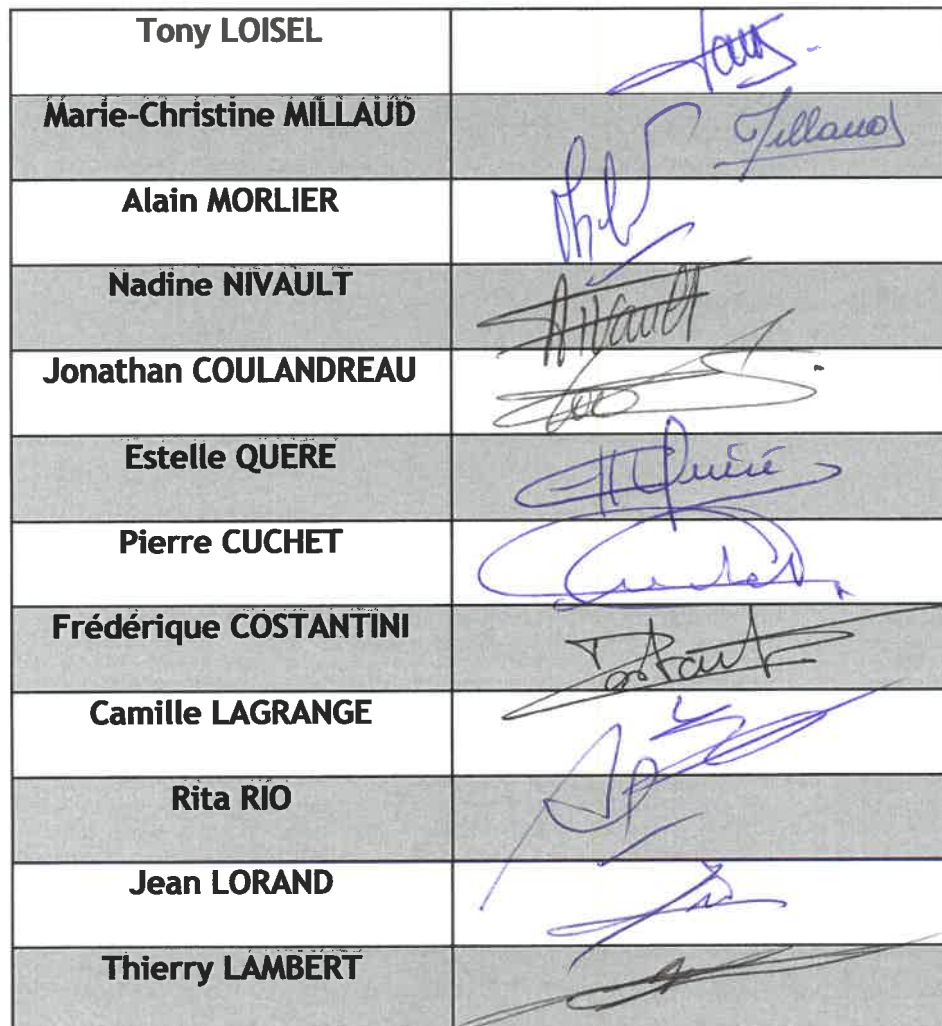 Tony LOISEL
Marie-Christine MILLAUD
Millaud
Alain MORLIER
Nadine NIVAULT
Nivault
Jonathan COULANDREAU
Estelle QUERE
Quéré
Pierre CUCHET
Frédérique COSTANTINI
Camille LAGRANGE
Rita RIO
Jean LORAND
Thierry LAMBERT